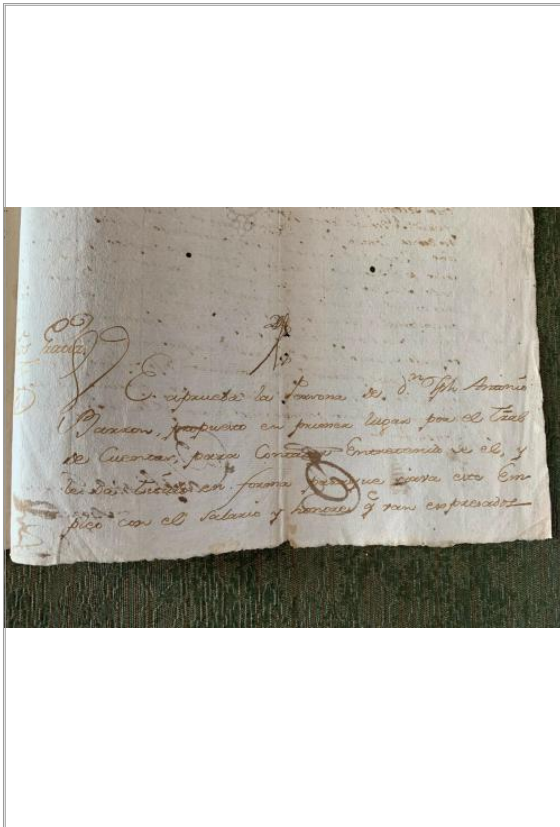 Gracia
Se aprueba la Persona de Dn Jph Antonio
Barron, propuesto en primer lugar por el Tral
de Cuentas, para Contador Entretenido de el, y
le da Titulo en forma para que sirva este Em-
pleo con el Salario y honores q van expresados